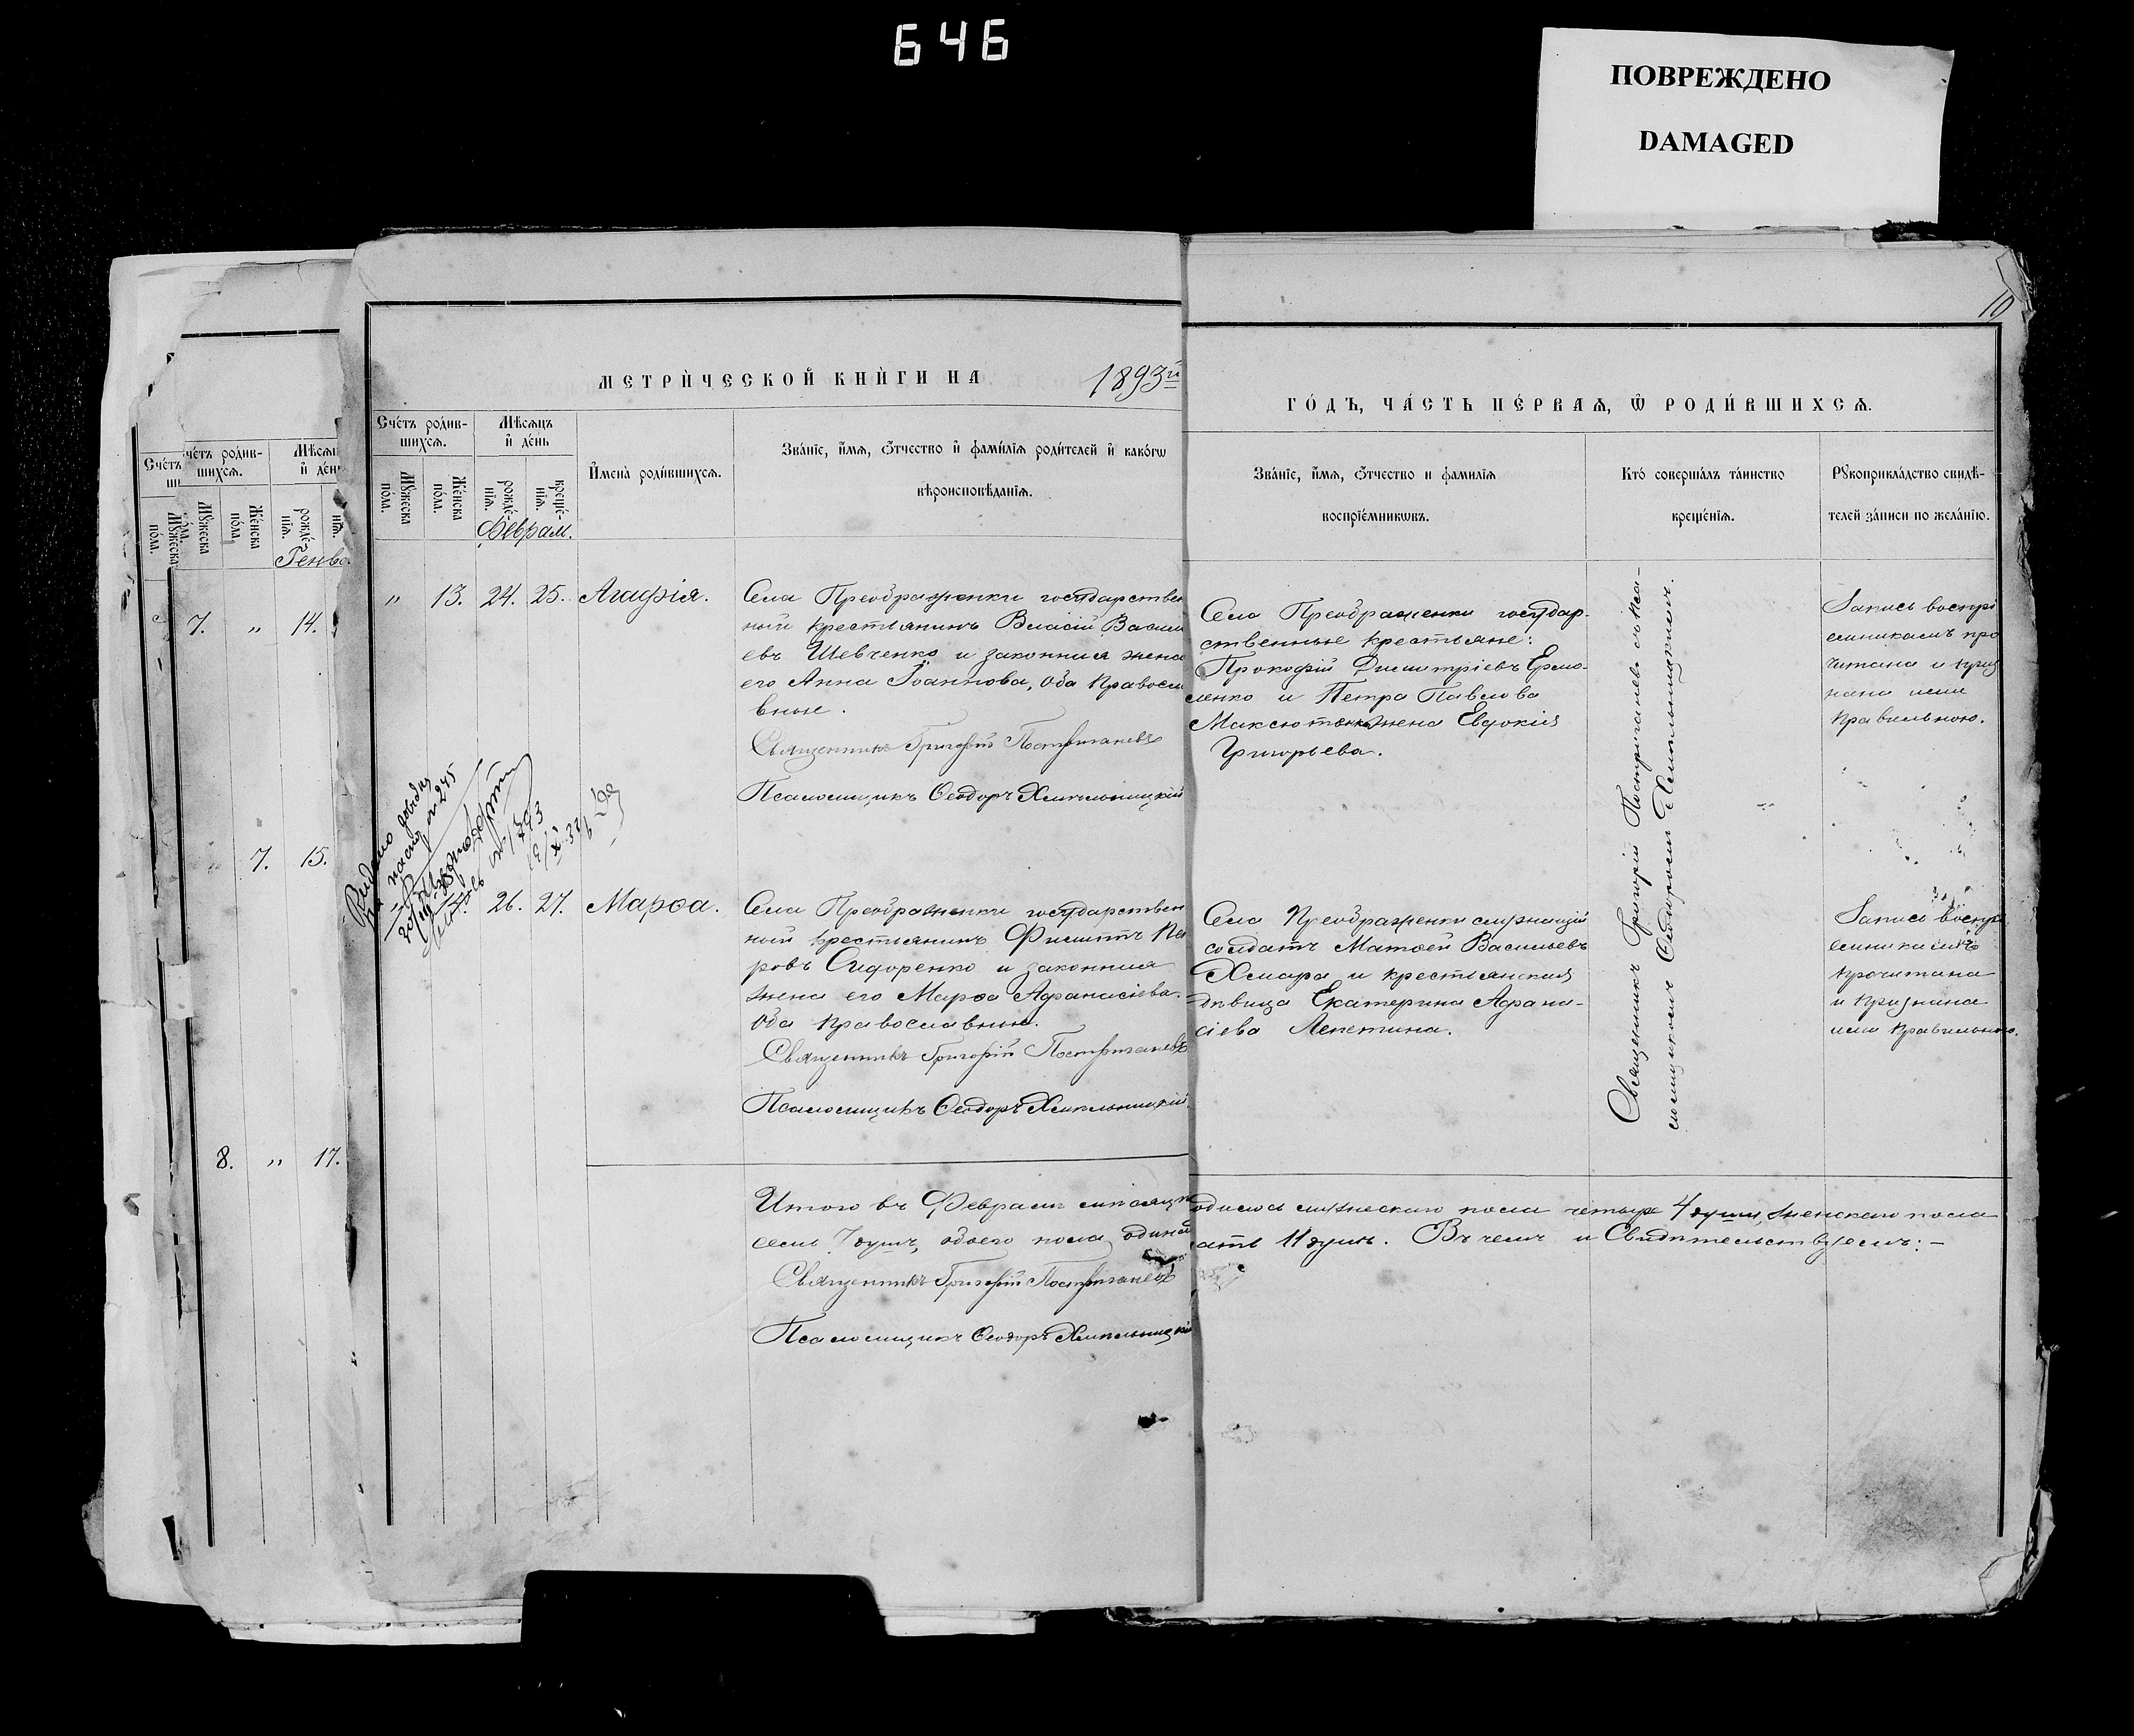 646
ПОВРЕЖДЕНО
DAMAGED
10
МЕТРИ́ЧЕСКОЙ КНИ́ГИ НА 1893й
ГО́ДЪ, ЧА́СТЬ ПЕ́РВАѦ, Ѿ РОДИ́ВШИХСѦ.
Сче́тъ роди́в-
шихсѧ.
Мꙋ́жеска
по́ла.
Же́нска
по́ла.
Мѣ́сѧцъ
и҆ де́нь
рожде́-
нїѧ.
креще́-
нїѧ.
Феврал.
И҆мена̀ роди́вшихсѧ.
Зва́нїе, и҆́мѧ, ѻ҆́тчество и҆ фами́лїѧ роди́телей и҆ како́гѡ
вѣроисповѣ́данїѧ.
Зва́нїе, и҆́мѧ, ѻ҆́тчество и фамилїѧ
воспрїе́мникѡвъ.
Кто́ соверша́лъ та́инство
креще́нїѧ.
Рꙋкоприкла́дство свидѣ́-
телей за́писи по жела́нїю.
" 13. 24. 25. Агафія.
Села Преображенки государствен
ный крестьянинъ Власій Васил
евъ Шевченко и законная жена
его Анна Іоаннова, оба правосла
вные.
Священникъ Григорій Постригачевъ
Псаломщикъ Ѳеодоръ Хмельницкій
Села Преображенки государ-
ственные крестьяне:
Прокофій Димитріевъ Ермо-
ленко и Петра Павлова
Максютенка жена Евдокія
Григорьева.
Священникъ Григорій Постригачевъ съ пса-
ломщикомъ Ѳеодоромъ Хмельницкимъ.
Запись воспрі
емникамъ про
читана и приз
нана ими
правильною.
14. 26. 27. Марѳа.
Села Преображенки государствен
ный крестьянинъ Филиппъ Пет
ровъ Сидоренко и законная
жена его Марѳа Афанасіева.
Оба православные.
Священникъ Григорій Постригачевъ
Псаломщикъ Ѳеодоръ Хмельницкій.
Села Преображенки служащій
солдатъ Матѳей Васильевъ
Хмара и крестьянская
дѣвица Екатерина Афана-
сіева Лепетина.
Запись воспрі
емникамъ
прочитана
и признана
ими правильною.
Итого въ Февралѣ мѣсяцѣ
одилось мужескаго пола четыре 4 души, женскаго пола
семь 7 душъ, обоего пола одинад
ать 11 душъ. Въ чемъ и Свидѣтельствуемъ: –
Священникъ Григорій Постригачевъ
Псаломщикъ Ѳеодоръ Хмельницкій
Сче́тъ
ши
Мꙋ́жеска
по́ла.
че́тъ роди́в-
шихсѧ.
Мꙋ́жеска
по́ла.
Же́нска
по́ла.
Мѣ́сѧ
и҆ де́н
рожде́-
нїѧ.
Генва
7. " 14.
7. 15.
8. " 17.